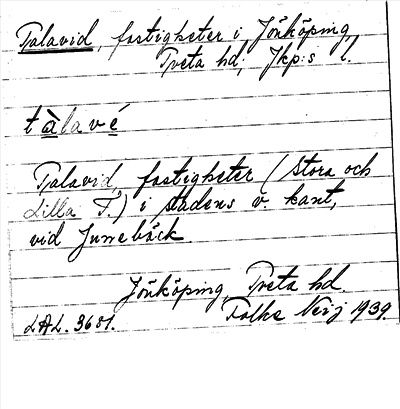 Talavid, fastigheter i Jönköping,
Tveta hd, Jkp:s l.
tàlavé
Talavid, fastigheter (Stora och
Lilla T.) i stadens v. kant,
vid Junebäck.
Jönköping, Tveta hd.
LAL. 3681.
Folke Neij 1939.